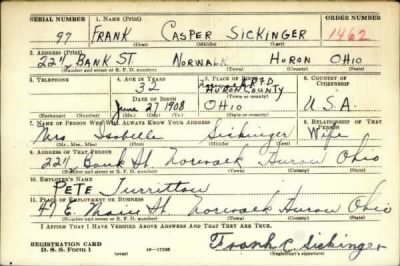 SERIAL NUMBER 1. NAME (Print) ORDER NUMBER
97 FRANK CASPER SICKINGER 1462
(First) (Middle) (Last)
2. ADDRESS (Print)
227 BANK ST. NORWALK HURON OHIO
(Number and street or R. F. D. number) (Town) (County) (State)
3. TELEPHONE 4. AGE IN YEARS 5. PLACE OF BIRTH 6. COUNTRY OF CITIZENSHIP
32 RFD
HURON COUNTY
DATE OF BIRTH (Town or county)
June 27 1908 OHIO U.S.A.
(Exchange) (Number) (Mo.) (Day) (Yr.) (State or country)
7. NAME OF PERSON WHO WILL ALWAYS KNOW YOUR ADDRESS 8. RELATIONSHIP OF THAT PERSON
Mrs Isabelle Sickinger Wife
(Mr., Mrs., Miss) (First) (Middle) (Last)
9. ADDRESS OF THAT PERSON
227 Bank St. Norwalk Huron Ohio
(Number and street or R. F. D. number) (Town) (County) (State)
10. EMPLOYER'S NAME
PETE
11. PLACE OF EMPLOYMENT OR BUSINESS
47 E Main St Norwalk Huron Ohio
(Number and street or R. F. D. number) (Town) (County) (State)
I AFFIRM THAT I HAVE VERIFIED ABOVE ANSWERS AND THAT THEY ARE TRUE.
REGISTRATION CARD
D. S. S. Form 1 Frank C. Sickinger
(Registrant's signature)